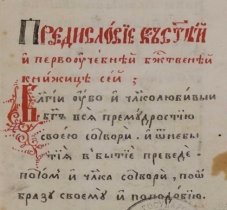 Предисловїе къ сей
и первоꙋчебнѣй бжⷭ҇твенѣй
книжицѣ сей ;
Благїи ꙋбо и чл҃колюбивыи
бг҃ъ вся премꙋдростїю
своею сотвори , и ѿнебы
тїя въ бытїе приведе .
потом и чл҃ка сотвори , поѡ
бразꙋ своемꙋ и поподобїю .